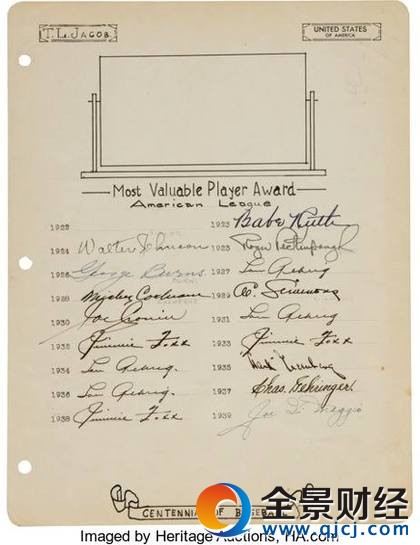 T. L. JACOB
UNITED STATES
OF AMERICA
Most Valuable Player Award
American League
1922 1923 Babe Ruth
1924 Walter Johnson 1925 Roger Peckinpaugh
1926 George Burns 1927 Lou Gehrig
1928 Mickey Cochrane 1929 Al Simmons
1930 Joe Cronin 1931 Lou Gehrig
1932 Jimmie Foxx 1933 Jimmie Foxx
1934 Lou Gehrig. 1935 Hank Greenberg
1936 Lou Gehrig. 1937 Chas. Gehringer.
1938 Jimmie Foxx 1939 Joe Di Maggio
CENTENNIAL OF BASEBALL
全景财经
www.qjcj.com
Imaged by Heritage Auctions, HA.com